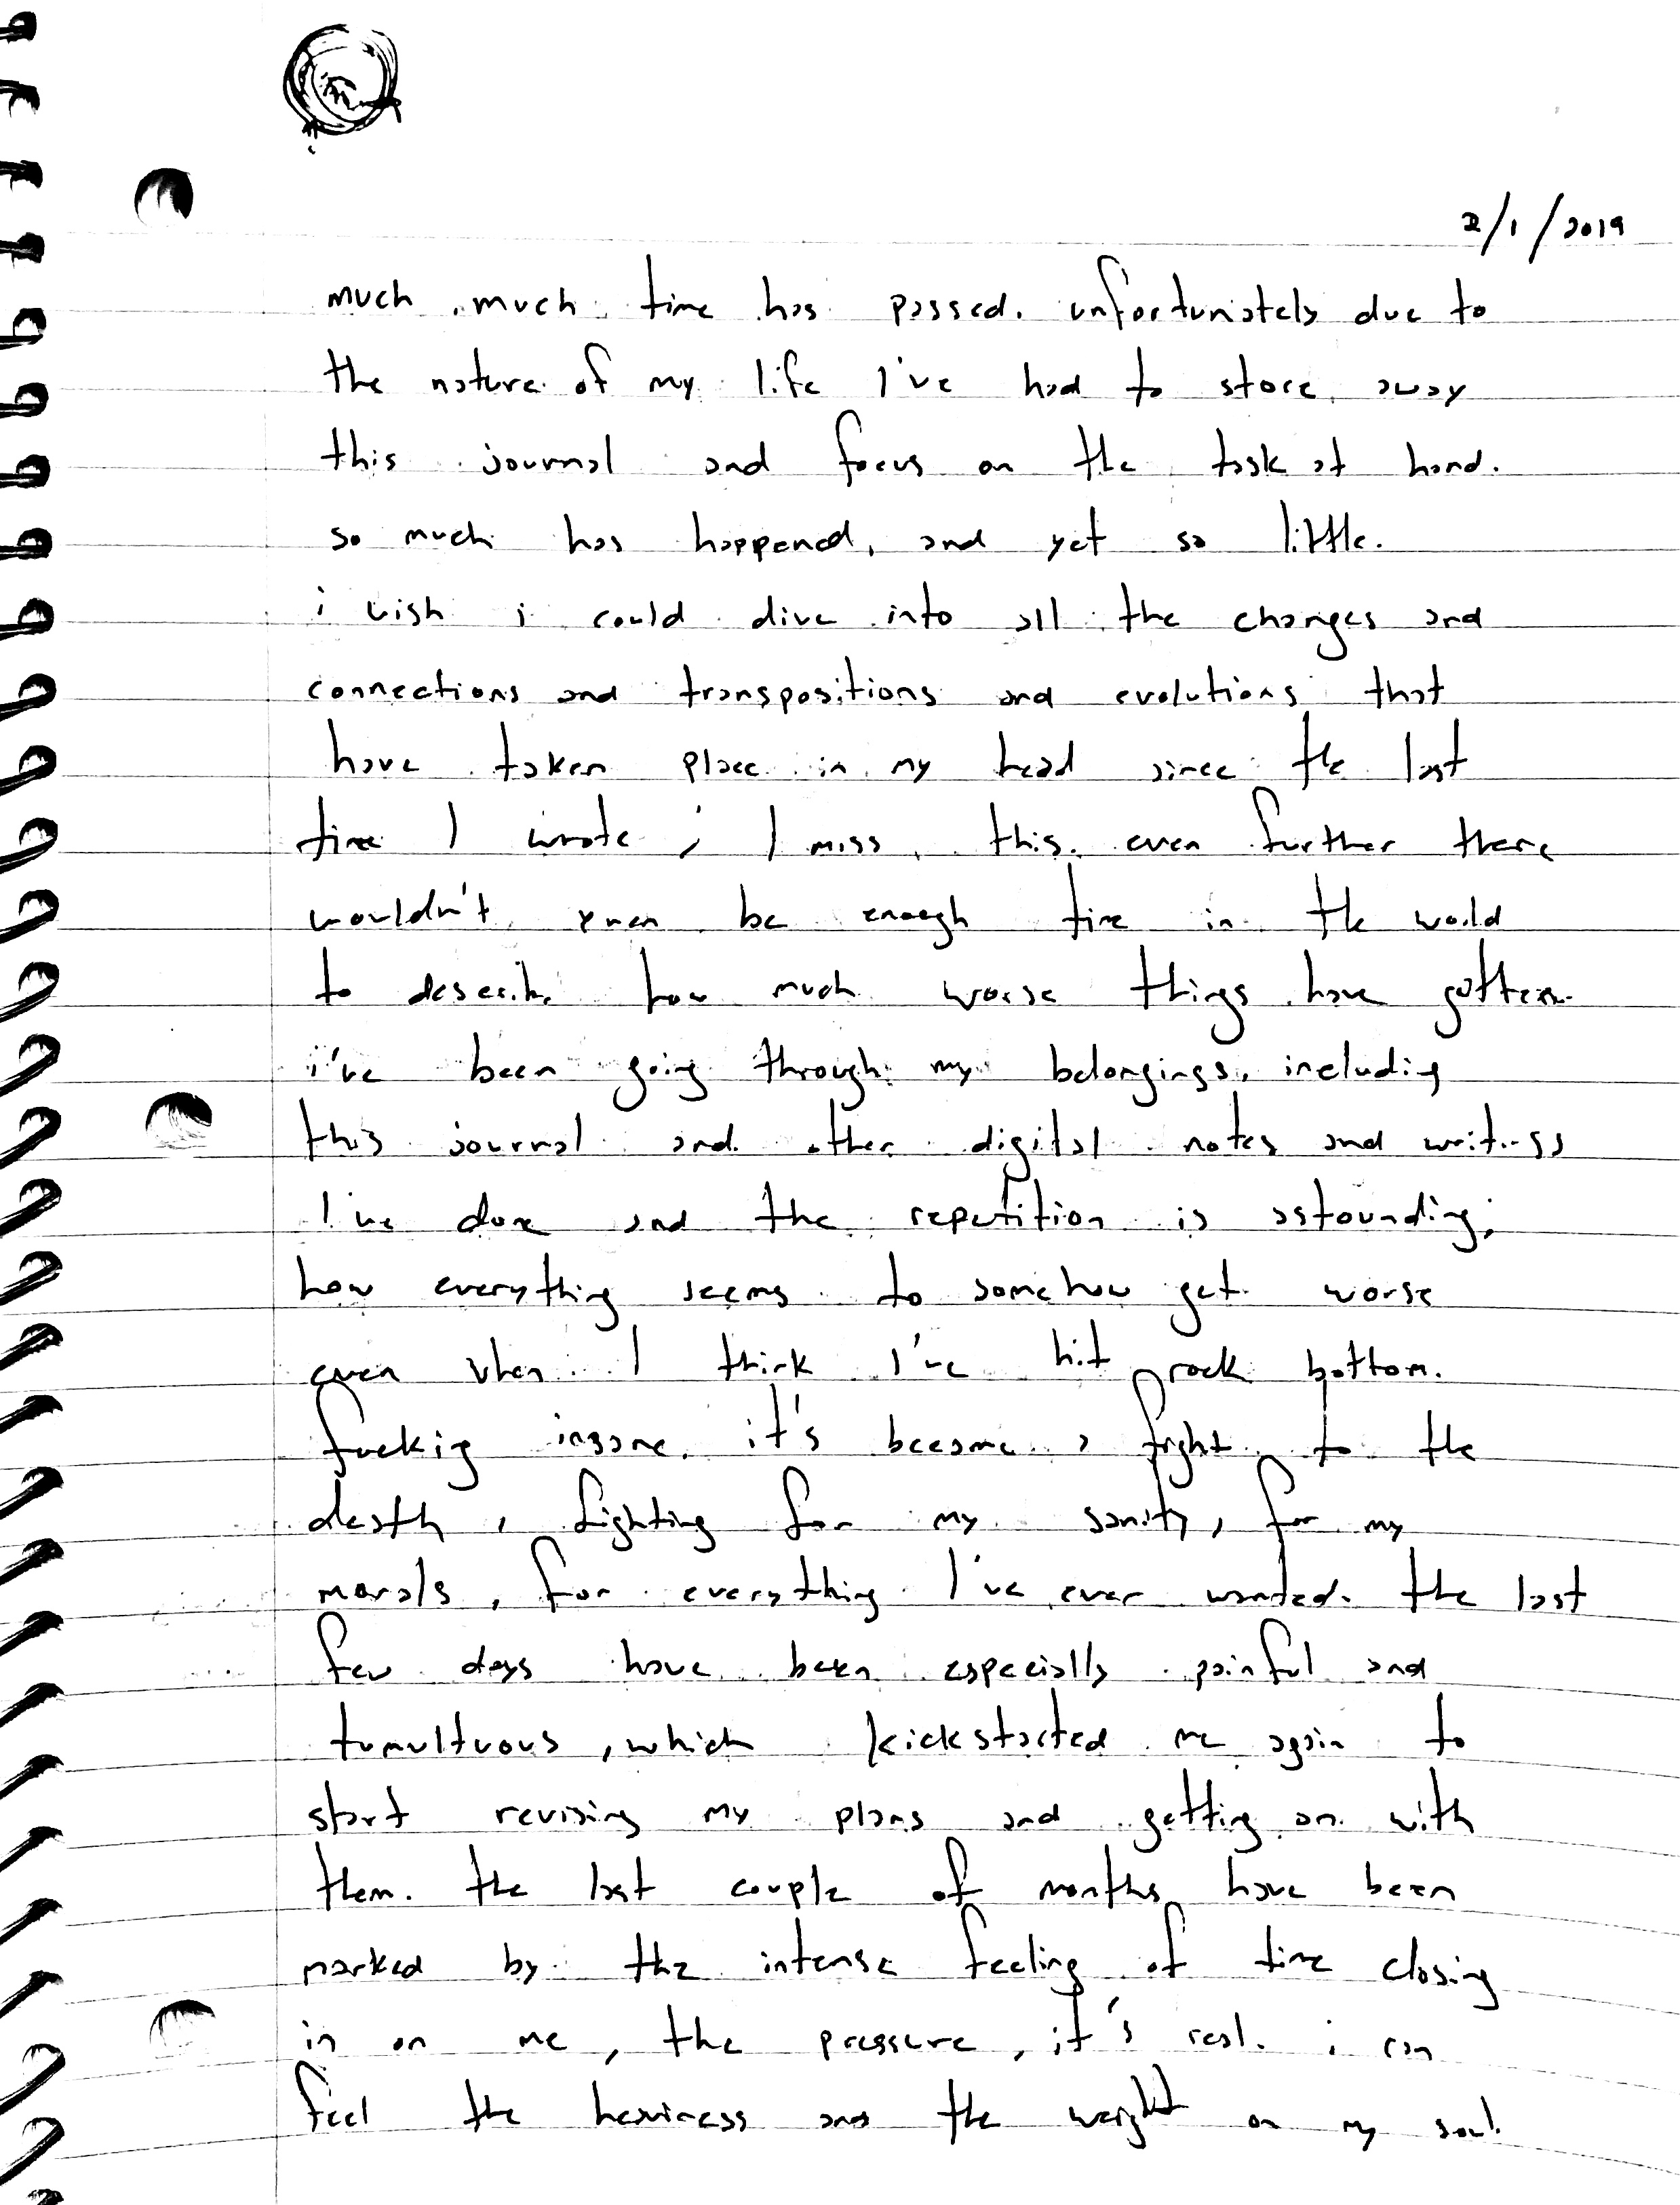 2/1/2019
much, much time has passed. unfortunately due to
the nature of my life I've had to store away
this journal and focus on the task at hand.
so much has happened, and yet so little.
i wish i could dive into all the changes and
connections and transpositions and evolutions that
have taken place in my head since the last
time I wrote; I miss this. even further there
wouldn't even be enough time in the world
to describe how much worse things have gotten.
i've been going through my belongings, including
this journal and other digital notes and writings
I've done and the repetition is astounding;
how everything seems to somehow get worse
even when I think I've hit rock bottom.
fucking insane. it's become a fight to the
death, fighting for my sanity, for my
morals, for everything I've ever wanted. the last
few days have been especially painful and
tumultuous, which kickstarted me again to
start revising my plans and getting on with
them. the last couple of months have been
marked by the intense feeling of time closing
in on me, the pressure, it's real. i can
feel the heaviness and the weight on my soul.